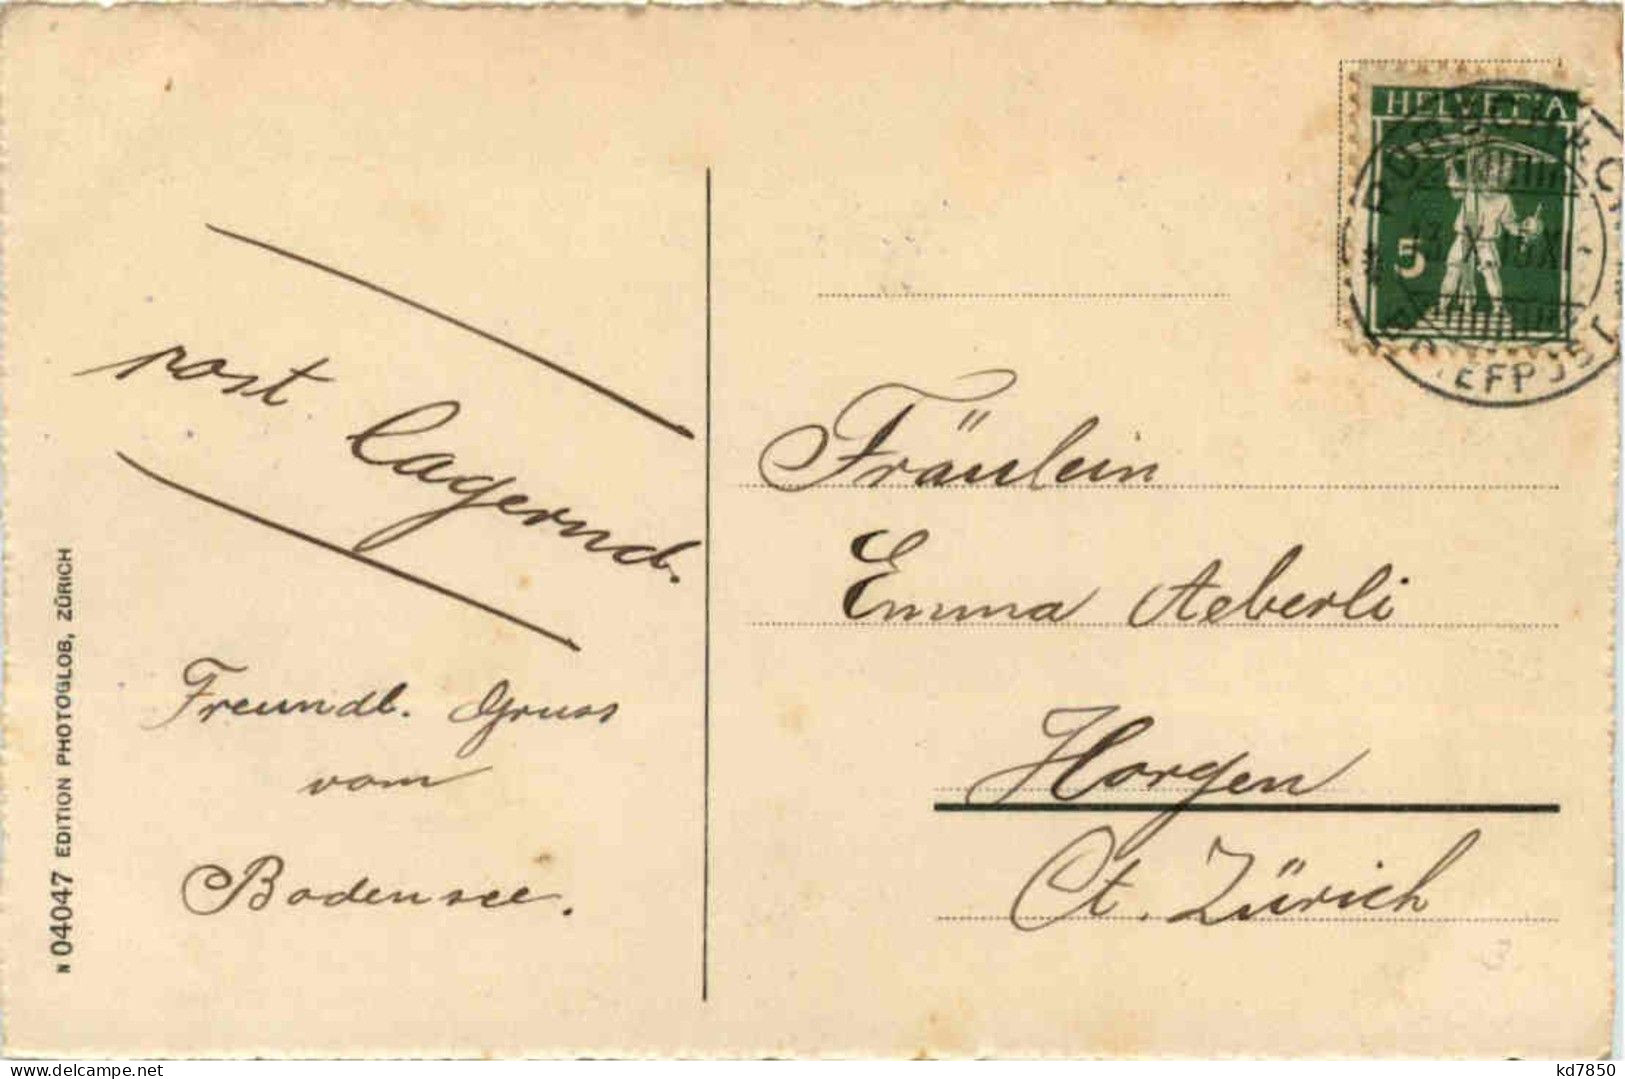 HELVETIA
5
RORSCHACH
BRIEFPOST
post lagernd.
Freundl. Gruss
vom
Bodensee.
Fräulein
Emma Aeberli
Horgen
Ct. Zürich
N 04047 EDITION PHOTOGLOB, ZÜRICH
kd7850